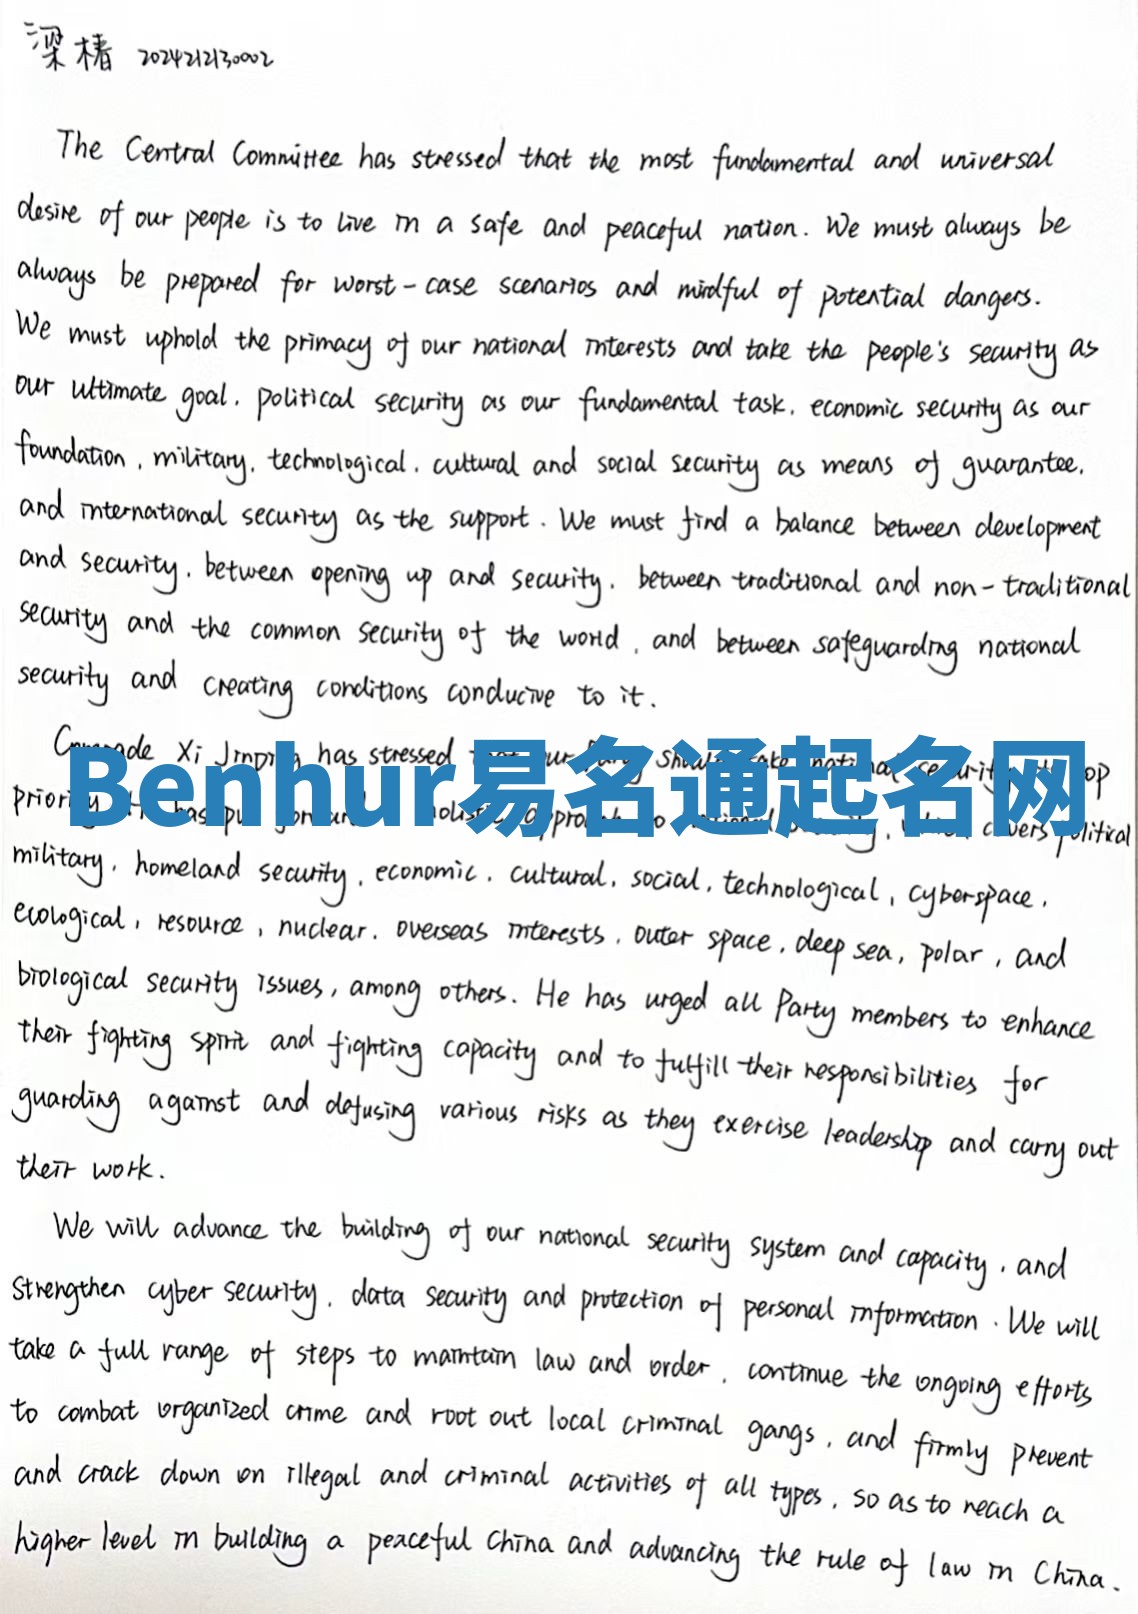 梁椿 2024212130002
The Central Committee has stressed that the most fundamental and universal
desire of our people is to live in a safe and peaceful nation. We must always be
always be prepared for worst-case scenarios and mindful of potential dangers.
We must uphold the primacy of our national interests and take the people's security as
our ultimate goal, political security as our fundamental task, economic security as our
foundation, military, technological, cultural and social security as means of guarantee,
and international security as the support. We must find a balance between development
and security, between opening up and security, between traditional and non-traditional
security and the common security of the world, and between safeguarding national
security and creating conditions conducive to it.
Comrade Xi Jinping has stressed that our Party should take national security top
Benhur易名通起名网
priority. has put holistic approach to, which covers political
military, homeland security, economic, cultural, social, technological, cyberspace,
ecological, resource, nuclear, overseas interests, outer space, deep sea, polar, and
biological security issues, among others. He has urged all Party members to enhance
their fighting spirit and fighting capacity and to fulfill their responsibilities for
guarding against and defusing various risks as they exercise leadership and carry out
their work.
We will advance the building of our national security system and capacity, and
strengthen cyber security, data security and protection of personal information. We will
take a full range of steps to maintain law and order, continue the ongoing efforts
to combat organized crime and root out local criminal gangs, and firmly prevent
and crack down on illegal and criminal activities of all types, so as to reach a
higher level in building a peaceful China and advancing the rule of law in China.